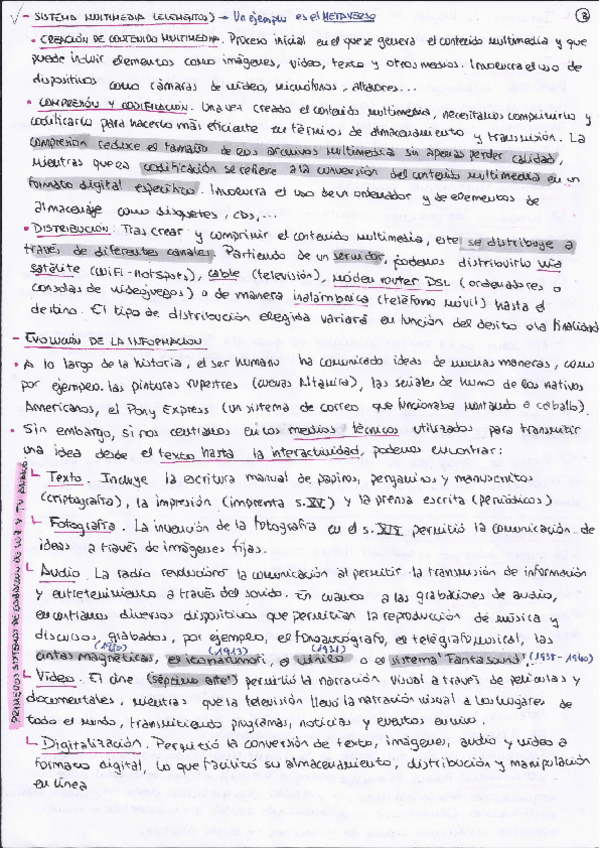 - SISTEMA MULTIMEDIA (ELEMENTOS) → Un ejemplo es el METAVERSO
3
• CREACIÓN DE CONTENIDO MULTIMEDIA. Proceso inicial en el que se genera el contenido multimedia y que
puede incluir elementos como imágenes, video, texto y otros medios. Involucra el uso de
dispositivos como cámaras de video, micrófonos, altavoces...
• COMPRESIÓN Y CODIFICACIÓN. Una vez creado el contenido multimedia, necesitamos comprimirlo y
codificarlo para hacerlo más eficiente en términos de almacenamiento y transmisión. La
compresión reduce el tamaño de los archivos multimedia sin apenas perder calidad,
mientras que la codificación se refiere a la conversión del contenido multimedia en un
formato digital específico. Involucra el uso de un ordenador y de elementos de
almacenaje como disquetes, cds,...
• DISTRIBUCIÓN. Tras crear y comprimir el contenido multimedia, este se distribuye a
través de diferentes canales. Partiendo de un servidor, podemos distribuirlo vía
satélite (WiFi-Hotspots), cable (televisión), módem router DSL (ordenadores o
consolas de videojuegos) o de manera inalámbrica (teléfono móvil) hasta el
destino. El tipo de distribución elegida variará en función del destino o la finalidad
- EVOLUCIÓN DE LA INFORMACIÓN
• A lo largo de la historia, el ser humano ha comunicado ideas de muchas maneras, como
por ejemplo. las pinturas rupestres (cuevas Altamira), las señales de humo de los nativos
Americanos, el Pony Express (un sistema de correo que funcionaba montando a caballo).
• Sin embargo, si nos centramos en los medios técnicos utilizados para transmitir
una idea desde el texto hasta la interactividad, podemos encontrar:
Texto. Incluye la escritura manual de papiros, pergaminos y manuscritos
(criptografía), la impresión (imprenta s.XV) y la prensa escrita (periódicos)
Fotografía. La invención de la fotografía en el s. XIX permitió la comunicación de
ideas a través de imágenes fijas.
Audio. La radio revolucionó la comunicación al permitir la transmisión de información
y entretenimiento a través del sonido. En cuanto a las grabaciones de audio,
encontramos diversos dispositivos que permitían la reproducción de música y
discursos, grabados, por ejemplo, el fonoautógrafo, el telégrafo musical, las
(1913) (1931) (1938-1940)
cintas magnéticas, el , el vinilo o el sistema "Fantasound".
Video. El cine (séptimo arte) permitió la narración visual a través de películas y
documentales, mientras que la televisión llevó la narración visual a los hogares de
todo el mundo, transmitiendo programas, noticias y eventos en vivo.
Digitalización. Permitió la conversión de texto, imágenes, audio y video a
formato digital, lo que facilitó su almacenamiento, distribución y manipulación
en línea
PRIMEROS SISTEMAS DE Y TV